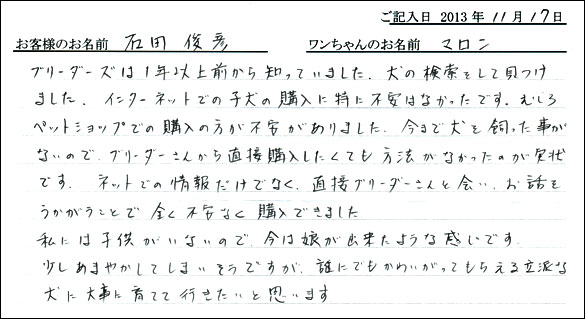 ご記入日 2013 年 11 月 17 日
お客様のお名前 石田 俊彦 ワンちゃんのお名前 マロン
ブリーダーズは1年以上前から知っていました。犬の検索をして見つけ
ました。インターネットでの子犬の購入に特に不安はなかったです。むしろ
ペットショップでの購入の方が不安がありました。今まで犬を飼った事が
ないので、ブリーダーさんから直接購入したくても方法がなかったのが実状
です。ネットでの情報だけでなく、直接ブリーダーさんと会い、お話を
うかがうことで全く不安なく購入できました
私には子供がいないので、今は娘が出来たような感じです。
少しあまやかしてしまいそうですが、誰にでもかわいがってもらえる立派な
犬に大事に育てて行きたいと思います